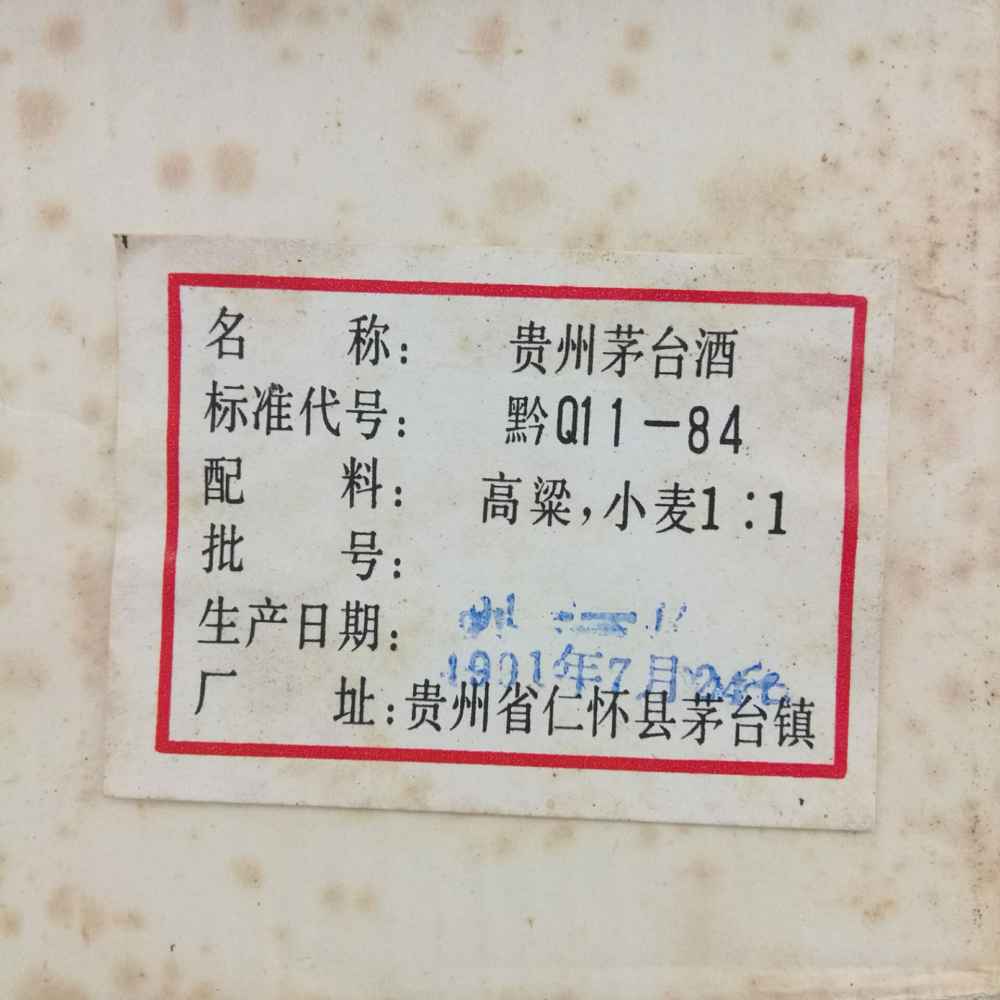 名 称： 贵州茅台酒
标准代号： 黔Q11－84
配 料： 高粱，小麦1：1
批 号：
生产日期：
年7月24日
厂 址：贵州省仁怀县茅台镇